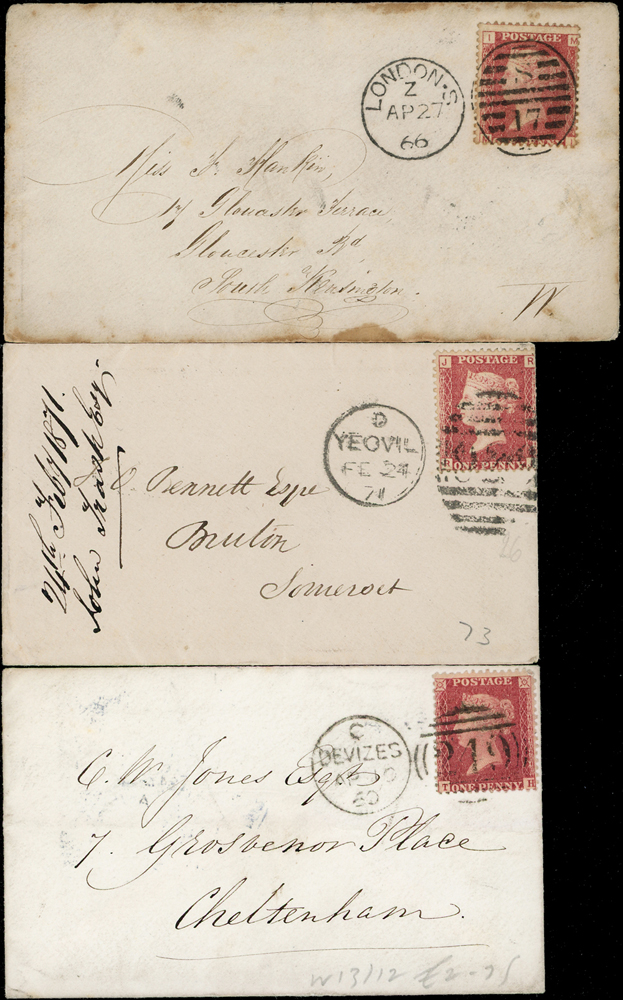 I M
POSTAGE
LONDON·S
Z
AP27
66
S
17
Miss F. Hankin,
17 Gloucester Terrace,
Gloucester Rd,
South Kensington.
W
J R
POSTAGE
ONE PENNY
D
YEOVIL
FE 24
71
24th Feby 1871.
John Esq.
Bennett Esqre
Bruton
Somerset
73
POSTAGE
T ONE PENNY H
C
DEVIZES
60
249
C. W. Jones Esqre
7. Grosvenor Place
Cheltenham.
W13/12 £2-75